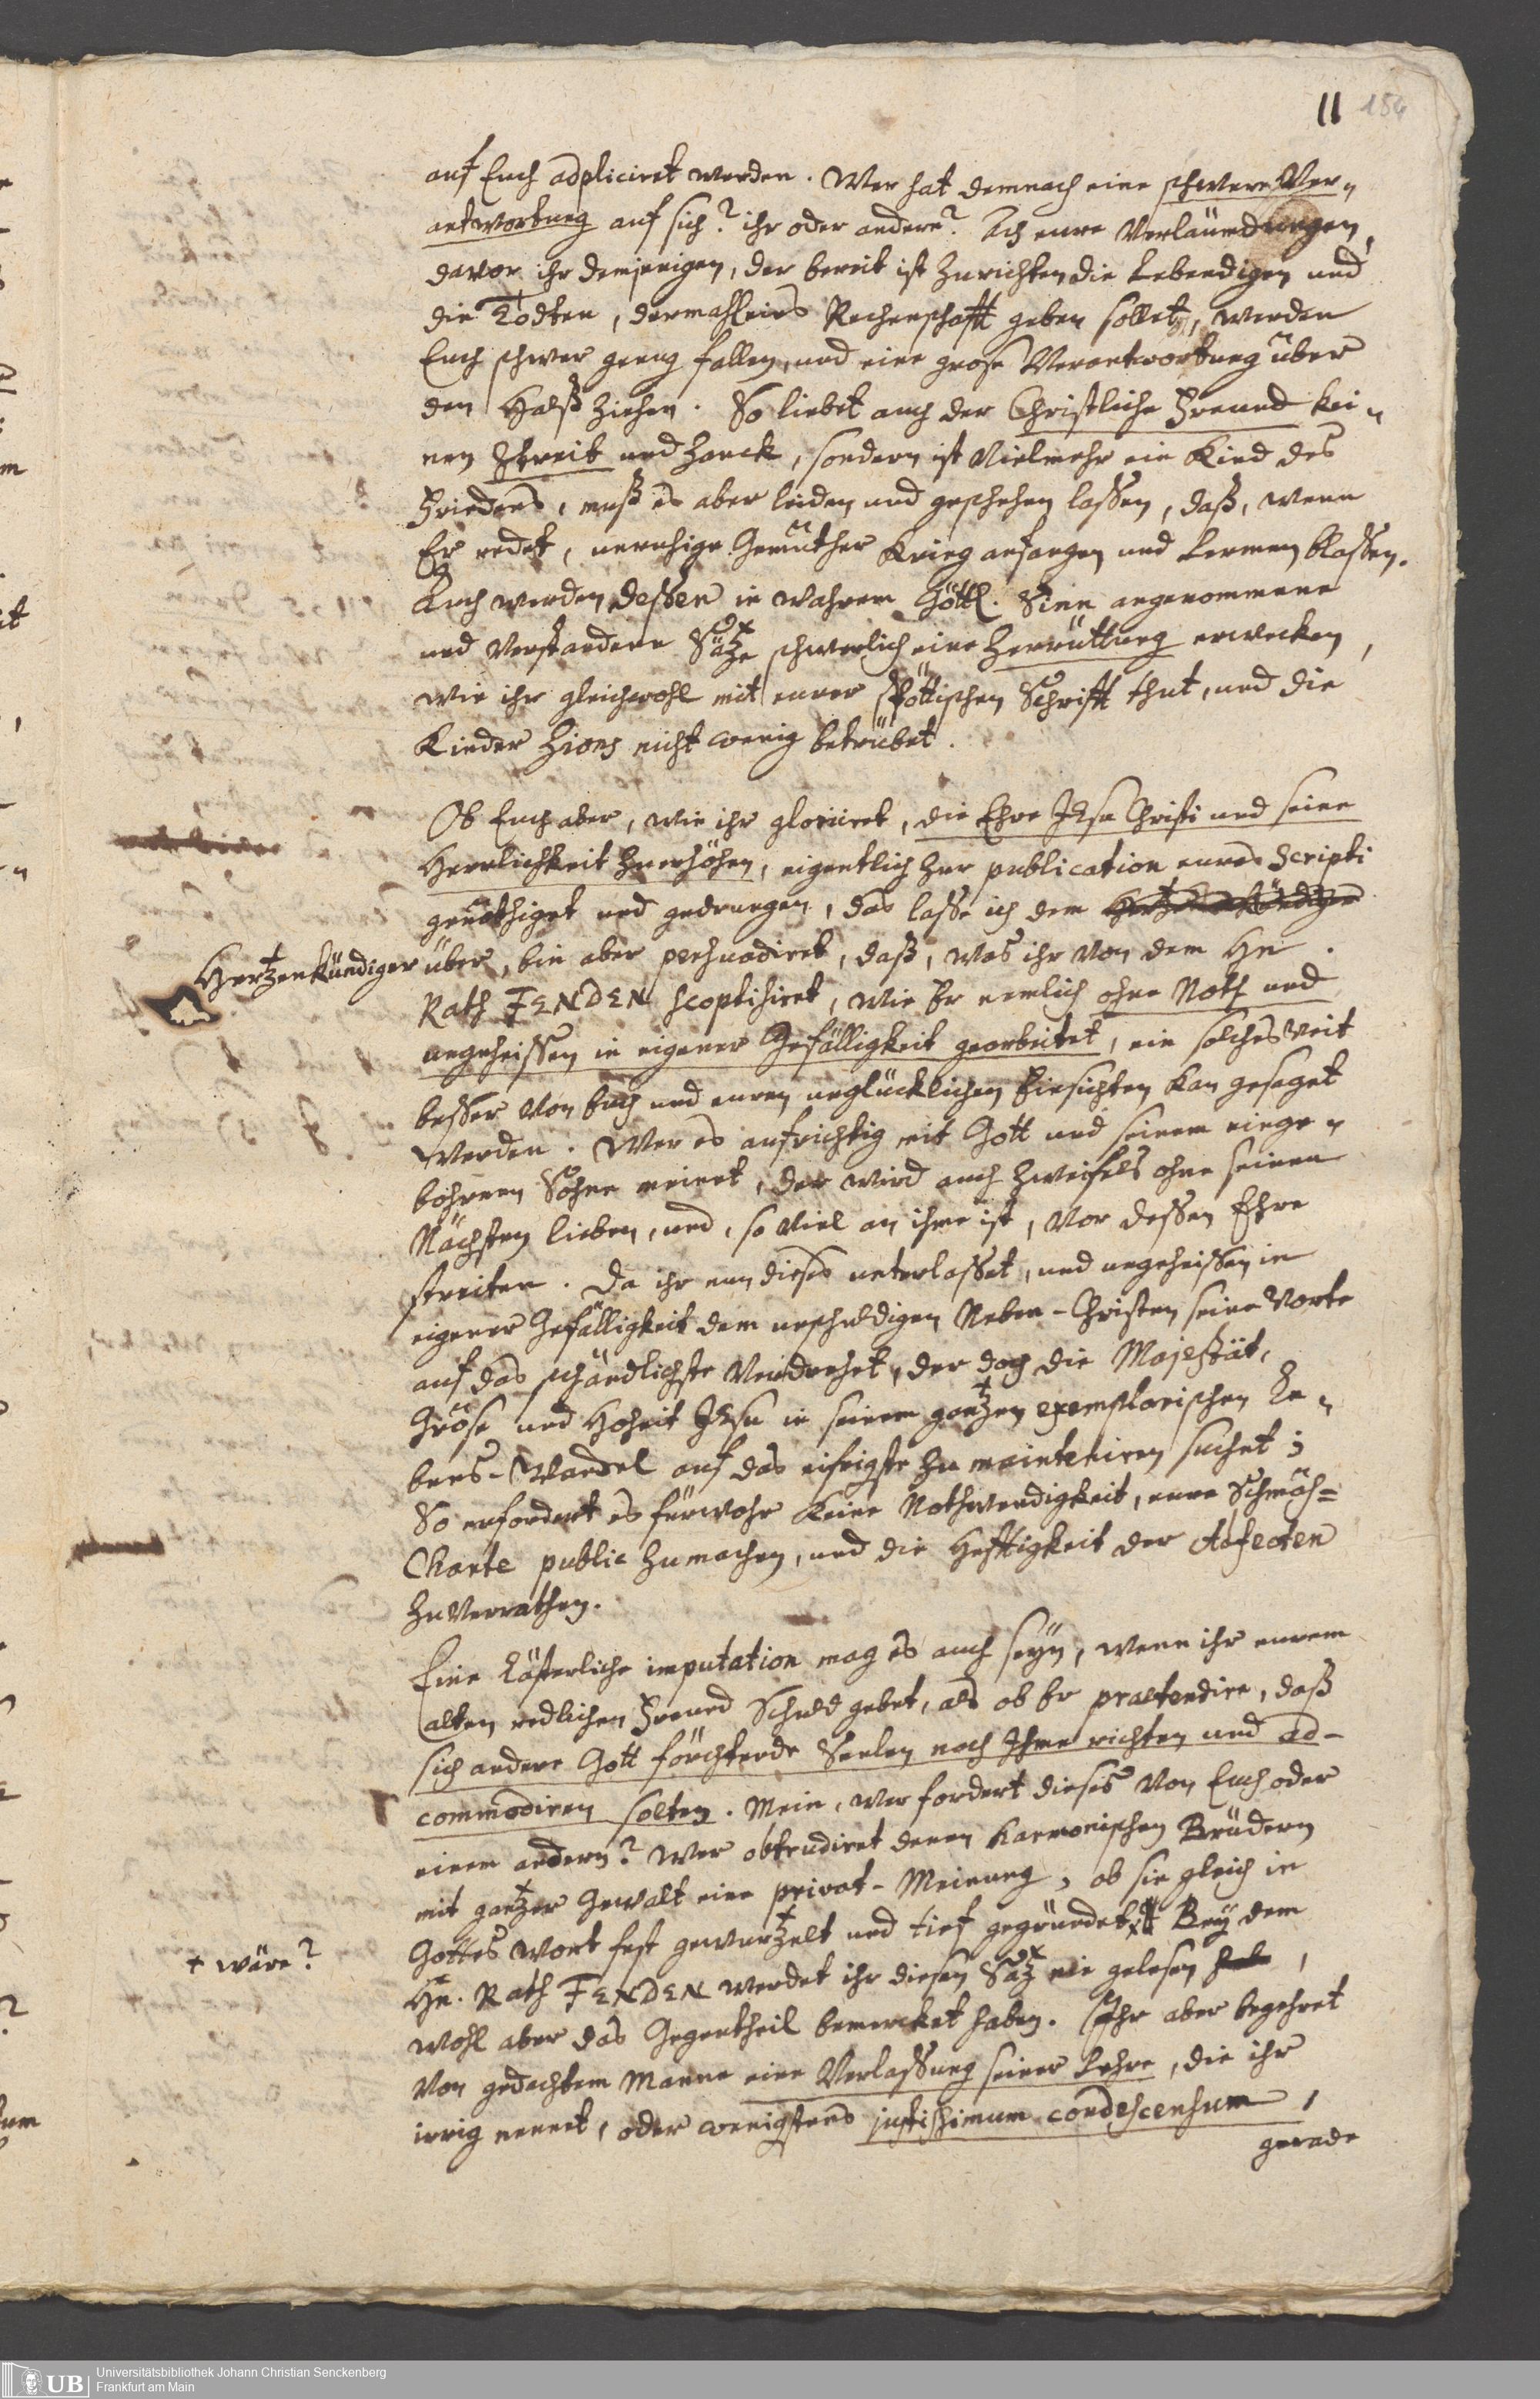 11 154
auf Euch adpliciret werden. Wer hat demnach eine schwere Ver„
antwortung auf sich? ihr oder andere? Ach eure Verläumdungen,
davor ihr demjenigen, der bereit ist zurichten die Lebendigen und
die Todten, dermahleins Rechenschafft geben sollet, werden
Euch schwer genug fallen, und eine grose Verantwortung über
den Halß ziehen. So liebet auch der Christliche Freund kei„
nen Streit und Zanck, sondern ist vielmehr ein Kind des
Friedens, muß es aber leiden und geschehen lassen, daß, wenn
Er redet, unruhige Gemüther Krieg anfangen und Lermen blassen.
Auch werden dessen in wahrem Göttl. Sinn angenommene
und verstandene Sätze schwerlich eine Zerrüttung erwecken,
wie ihr gleichwohl mit eurer spöttischen Schrifft thut, und die
Kinder Zions nicht wenig betrübet.
Ob Euch aber, wie ihr gloriiret, die Ehre JEsu Christi und seine
Herrlichkeit zuerhöhen, eigentlich zur publication eures Scripti
genöthiget und gedrungen, das lasse ich dem Hertzenkündiger
Hertzenkündiger über, bin aber persuadiret, daß, was ihr von dem Hn.
Rath FENDEN scoptisiret, wie Er nemlich ohne Noth und
ungeheissen in eigener Gefälligkeit gearbeitet, ein solches weit
besser von Euch und euren unglücklichen Einsichten kan gesaget
werden. Wer es aufrichtig mit Gott und seinem einge„
bohrnen Sohne meinet, der wird auch zweifels ohne seinen
Nächsten lieben, und, so viel an ihme ist, vor dessen Ehre
streiten. Da ihr nun dieses unterlasset, und ungeheissen in
eigener Gefälligkeit dem unschuldigen Neben-Christen seine Worte
auf das schändlichste verdrehet, der doch die Majestät,
Gröse und Hoheit JEsu in seinem gantzen exemplarischen Le„
bens-Wandel auf das eifrigste zu mainteniren suchet;
So erfordert es fürwahr keine Nothwendigkeit, eure Schmäh=
Charte public zumachen, und die Hefftigkeit der Affecten
zuverrathen.
Eine Lästerliche imputation mag es auch seyn, wenn ihr eurem
alten redlichen Freund Schuld gebet, als ob Er praetendire, daß
sich andere Gott förchtende Seelen nach Ihme richten und ac-
commodiren solten. Mein, wer fordert dieses von Euch oder
einem andern? Wer obtrudiret denen harmonischen Brüdern
mit gantzer Gewalt eine privat-Meinung, ob sie gleich in
Gottes Wort fest gewurtzelt und tief gegründet + Bey dem
+ wäre?
Hn. Rath FENDEN werdet ihr diesen Satz nie gelesen,
wohl aber das Gegentheil bemercket haben. Ihr aber begehret
von gedachtem Manne eine Verlassung seiner Lehre, die ihr
irrig nennet, oder wenigstens justissimum condescensum,
gerade
Universitätsbibliothek Johann Christian Senckenberg
Frankfurt am Main
UB